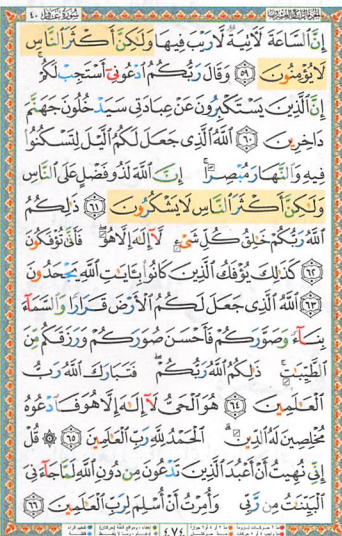 سورة غافر ٤٠
إِنَّ ٱلسَّاعَةَ لَأٓتِيَةٌ لَّا رَيْبَ فِيهَا وَلَٰكِنَّ أَكْثَرَ ٱلنَّاسِ
لَا يُؤْمِنُونَ ٥٩ وَقَالَ رَبُّكُمُ ٱدْعُونِىٓ أَسْتَجِبْ لَكُمْ
إِنَّ ٱلَّذِينَ يَسْتَكْبِرُونَ عَنْ عِبَادَتِى سَيَدْخُلُونَ جَهَنَّمَ
دَاخِرِينَ ٦٠ ٱللَّهُ ٱلَّذِى جَعَلَ لَكُمُ ٱلَّيْلَ لِتَسْكُنُوا۟
فِيهِ وَٱلنَّهَارَ مُبْصِرًا إِنَّ ٱللَّهَ لَذُو فَضْلٍ عَلَى ٱلنَّاسِ
وَلَٰكِنَّ أَكْثَرَ ٱلنَّاسِ لَا يَشْكُرُونَ ٦١ ذَٰلِكُمُ
ٱللَّهُ رَبُّكُمْ خَٰلِقُ كُلِّ شَىْءٍ لَّآ إِلَٰهَ إِلَّا هُوَ فَأَنَّىٰ تُؤْفَكُونَ
٦٢ كَذَٰلِكَ يُؤْفَكُ ٱلَّذِينَ كَانُوا۟ بِـَٔايَٰتِ ٱللَّهِ يَجْحَدُونَ
٦٣ ٱللَّهُ ٱلَّذِى جَعَلَ لَكُمُ ٱلْأَرْضَ قَرَارًا وَٱلسَّمَآءَ
بِنَآءً وَصَوَّرَكُمْ فَأَحْسَنَ صُوَرَكُمْ وَرَزَقَكُم مِّنَ
ٱلطَّيِّبَٰتِ ذَٰلِكُمُ ٱللَّهُ رَبُّكُمْ فَتَبَارَكَ ٱللَّهُ رَبُّ
ٱلْعَٰلَمِينَ ٦٤ هُوَ ٱلْحَىُّ لَآ إِلَٰهَ إِلَّا هُوَ فَٱدْعُوهُ
مُخْلِصِينَ لَهُ ٱلدِّينَ ٱلْحَمْدُ لِلَّهِ رَبِّ ٱلْعَٰلَمِينَ ٦٥ ۞ قُلْ
إِنِّى نُهِيتُ أَنْ أَعْبُدَ ٱلَّذِينَ تَدْعُونَ مِن دُونِ ٱللَّهِ لَمَّا جَآءَنِىَ
ٱلْبَيِّنَٰتُ مِن رَّبِّى وَأُمِرْتُ أَنْ أُسْلِمَ لِرَبِّ ٱلْعَٰلَمِينَ ٦٦
٤٧٤